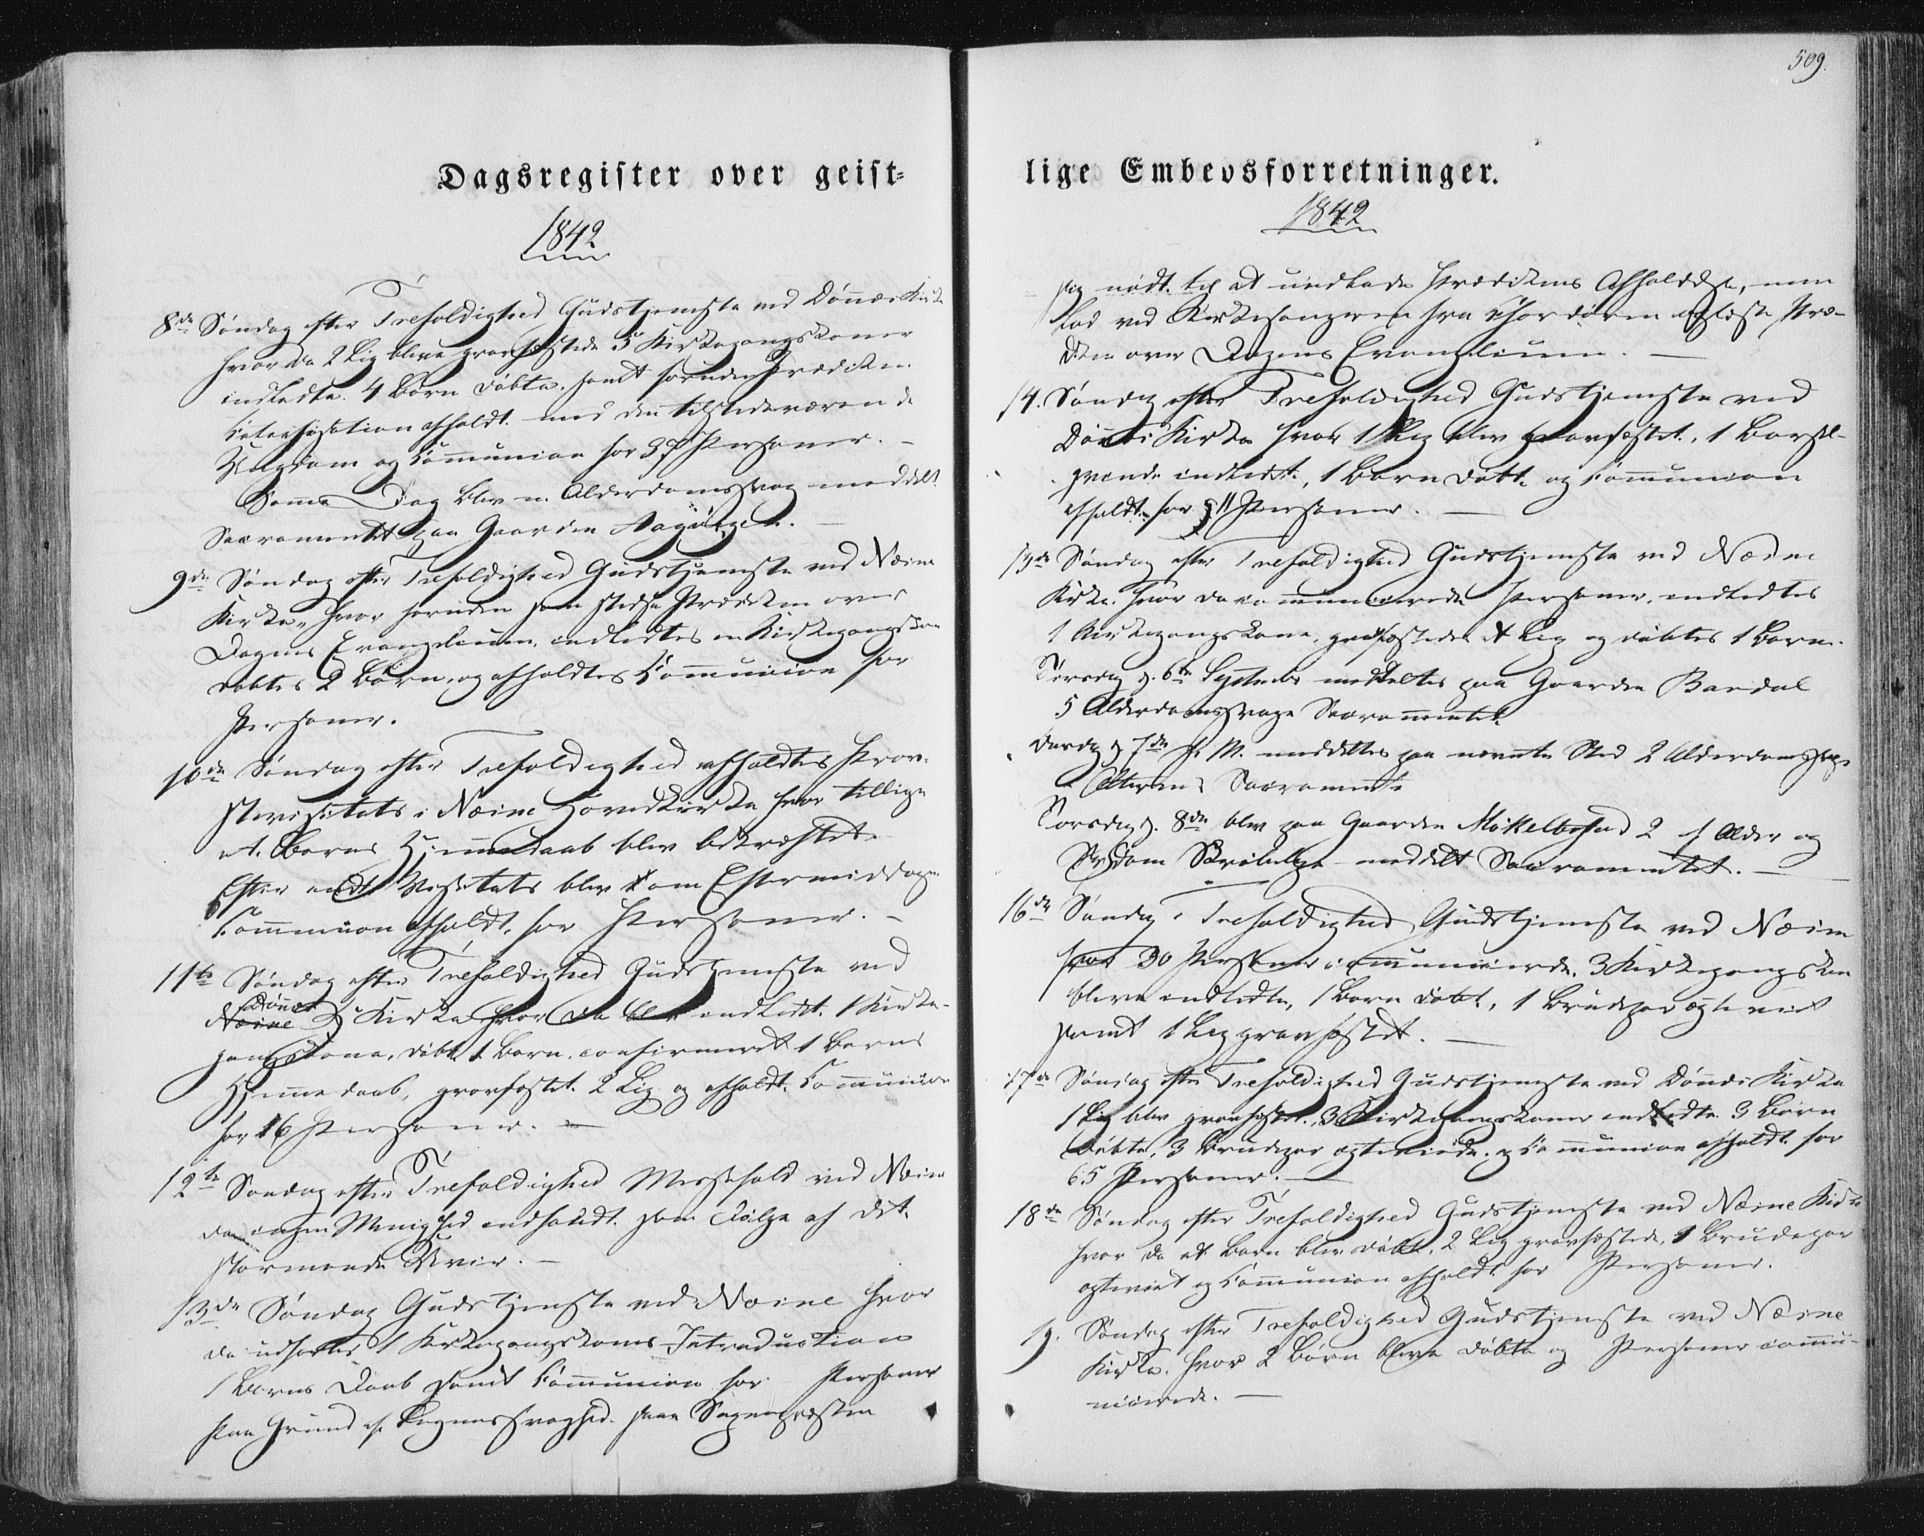 Dagsregister over geist-
1842
8de Søndag efter Trefoldighed Gudstjeneste ved Dønnes Kirke
hvor da 2 Lig bleve gravfæstede 5 Kirkegangskoner
indledte. 4 Børn døbte, samt foruden Prædiken
Catechisation afholdt med den tilstedeværende
Ungdom og Communion for Personer. –
Samme Dag blev en Alderdomssvag meddelt
Sacramentet paa Gaarden
9de Søndag efter Trefoldighed Gudstjeneste ved Nesne
Kirke, hvor foruden Prædiken over
Dagens Evangelium, indledtes en Kirkegangskone
døbtes 2 Børn, og afholdtes Communion for
Personer.
10de Søndag efter Trefoldighed afholdtes Prov-
stevisitats i Nesne Hovedkirke hvor tillige
et Barns Hjemmedaab blev bekræftet.
Efter endt Visitats blev om Eftermiddagen
Communion afholdt for Personer. –
11te Søndag efter Trefoldighed Gudstjeneste ved
Dønnes
Nesne Kirke hvor da blev indledt 1 Kirke-
gangskone, døbt 1 Barn, confirmeret 1 Barns
Hjemmedaab, gravfæstet 2 Lig og afholdt Communion
for 16 Personer. –
12te Søndag efter Trefoldighed Messefald ved Nesne
da ingen Menighed indfandt sig som Følge af det
stormende Veir. –
13de Søndag Gudstjeneste ved Nesne hvor
da udførtes 1 Kirkegangskones Introduction
1 Barns Daab samt Communion for Personer
paa Grund af Svaghed saae Sognepræsten
509.
lige Embedsforretninger.
1842
sig nødt til at undlade Prædikens Afholdelse, men
lod ved Kirkesangeren fra Chordøren oplæse Præ-
diken over Dagens Evangelium. –
14. Søndag efter Trefoldighed Gudstjeneste ved
Dønnes Kirke hvor 1 Lig blev gravfæstet, 1 Barsel-
qvinde indledt, 1 Barn døbt og Communion
afholdt for Personer. –
Søndag efter Trefoldighed Gudstjeneste ved Nesne
Kirke. hvor da communicerede Personer, indledtes
1 Kirkegangskone, gravfæstedes et Lig og døbtes 1 Barn.
Tirsdag d. 6te Septembr meddeltes paa Gaarden Bardal
5 Alderdomssvage Sacramentet.
Onsdag d 7de s. M. meddeltes paa nævnte Sted 2 Alderdomssvage
Alterens Sacramente
Torsdag d. 8de blev paa Gaarden Møkelbostad 2 af Alder og
Sygdom Skrøbelige meddelt Sacramentet. –
16de Søndag e Trefoldighed Gudstjeneste ved Nesne
hvor 30 Personer communicerede, 3 Kirkegangskoner
bleve indledte, 1 Barn døbt, 1 Brudepar ægteviet
samt 1 Lig gravfæstet. –
17de Søndag efter Trefoldighed Gudstjeneste ved Dønnes Kirke
1 Lig blev gravfæstet, 3 Kirkegangskoner indledte 3 Børn
døbte, 3 Brudepar ægteviede, og Communion afholdt for
65 Personer. –
18de Søndag efter Trefoldighed Gudstjeneste ved Nesne Kirke
hvor da et Barn blev døbt, 2 Lig gravfæstede, 1 Brudepar
ægteviet og Communion afholdt for Personer.
19. Søndag efter Trefoldighed Gudstjeneste ved Nesne
Kirke. hvor 2 Børn bleve døbte og Personer commu-
nicerede. –